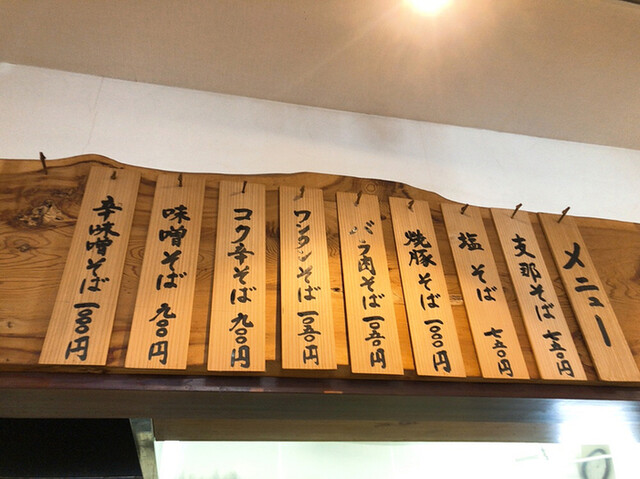 メニュー
支那そば 七五〇円
塩そば 七五〇円
焼豚そば 一一〇〇円
バラ肉そば 一〇五〇円
ワンタンそば 一〇五〇円
コク辛そば 九〇〇円
味噌そば 九〇〇円
辛味噌そば 一〇〇〇円